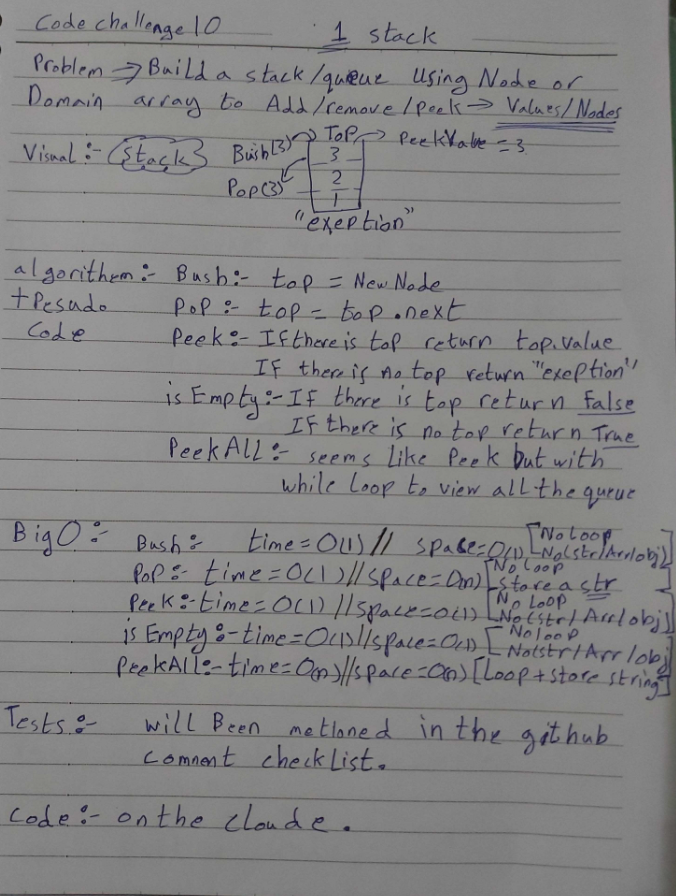 Code challenge 10 1 stack
Problem → Build a stack/queue Using Node or
Domain array to Add/remove/peek → Values/Nodes
Visual:- Stack Bush(3) → Top → Peek Value = 3
3
Pop(3) 2
1
"exeption"
algorithem:- Bush:- top = New Node
+Pesudo Pop:- top = top.next
Code Peek:- If there is top return top.value
If there is no top return "exeption"
is Empty:- If there is top return False
If there is no top return True
Peek ALL:- seems like Peek but with
while loop to view all the queue
Big O:- Bush:- time = O(1) // space = O(1) [No Loop
No(str/Arr/obj)]
Pop:- time = O(1) // space = O(n) [No loop
store a str]
Peek:- time = O(1) // space = O(1) [No Loop
No(str/Arr/obj)]
is Empty:- time = O(1) // space = O(1) [No loop
No(str/Arr/obj)]
Peek ALL:- time = O(n) // space = O(n) [Loop + store string]
Tests:- will Been metioned in the github
comment check list.
Code:- on the cloude.